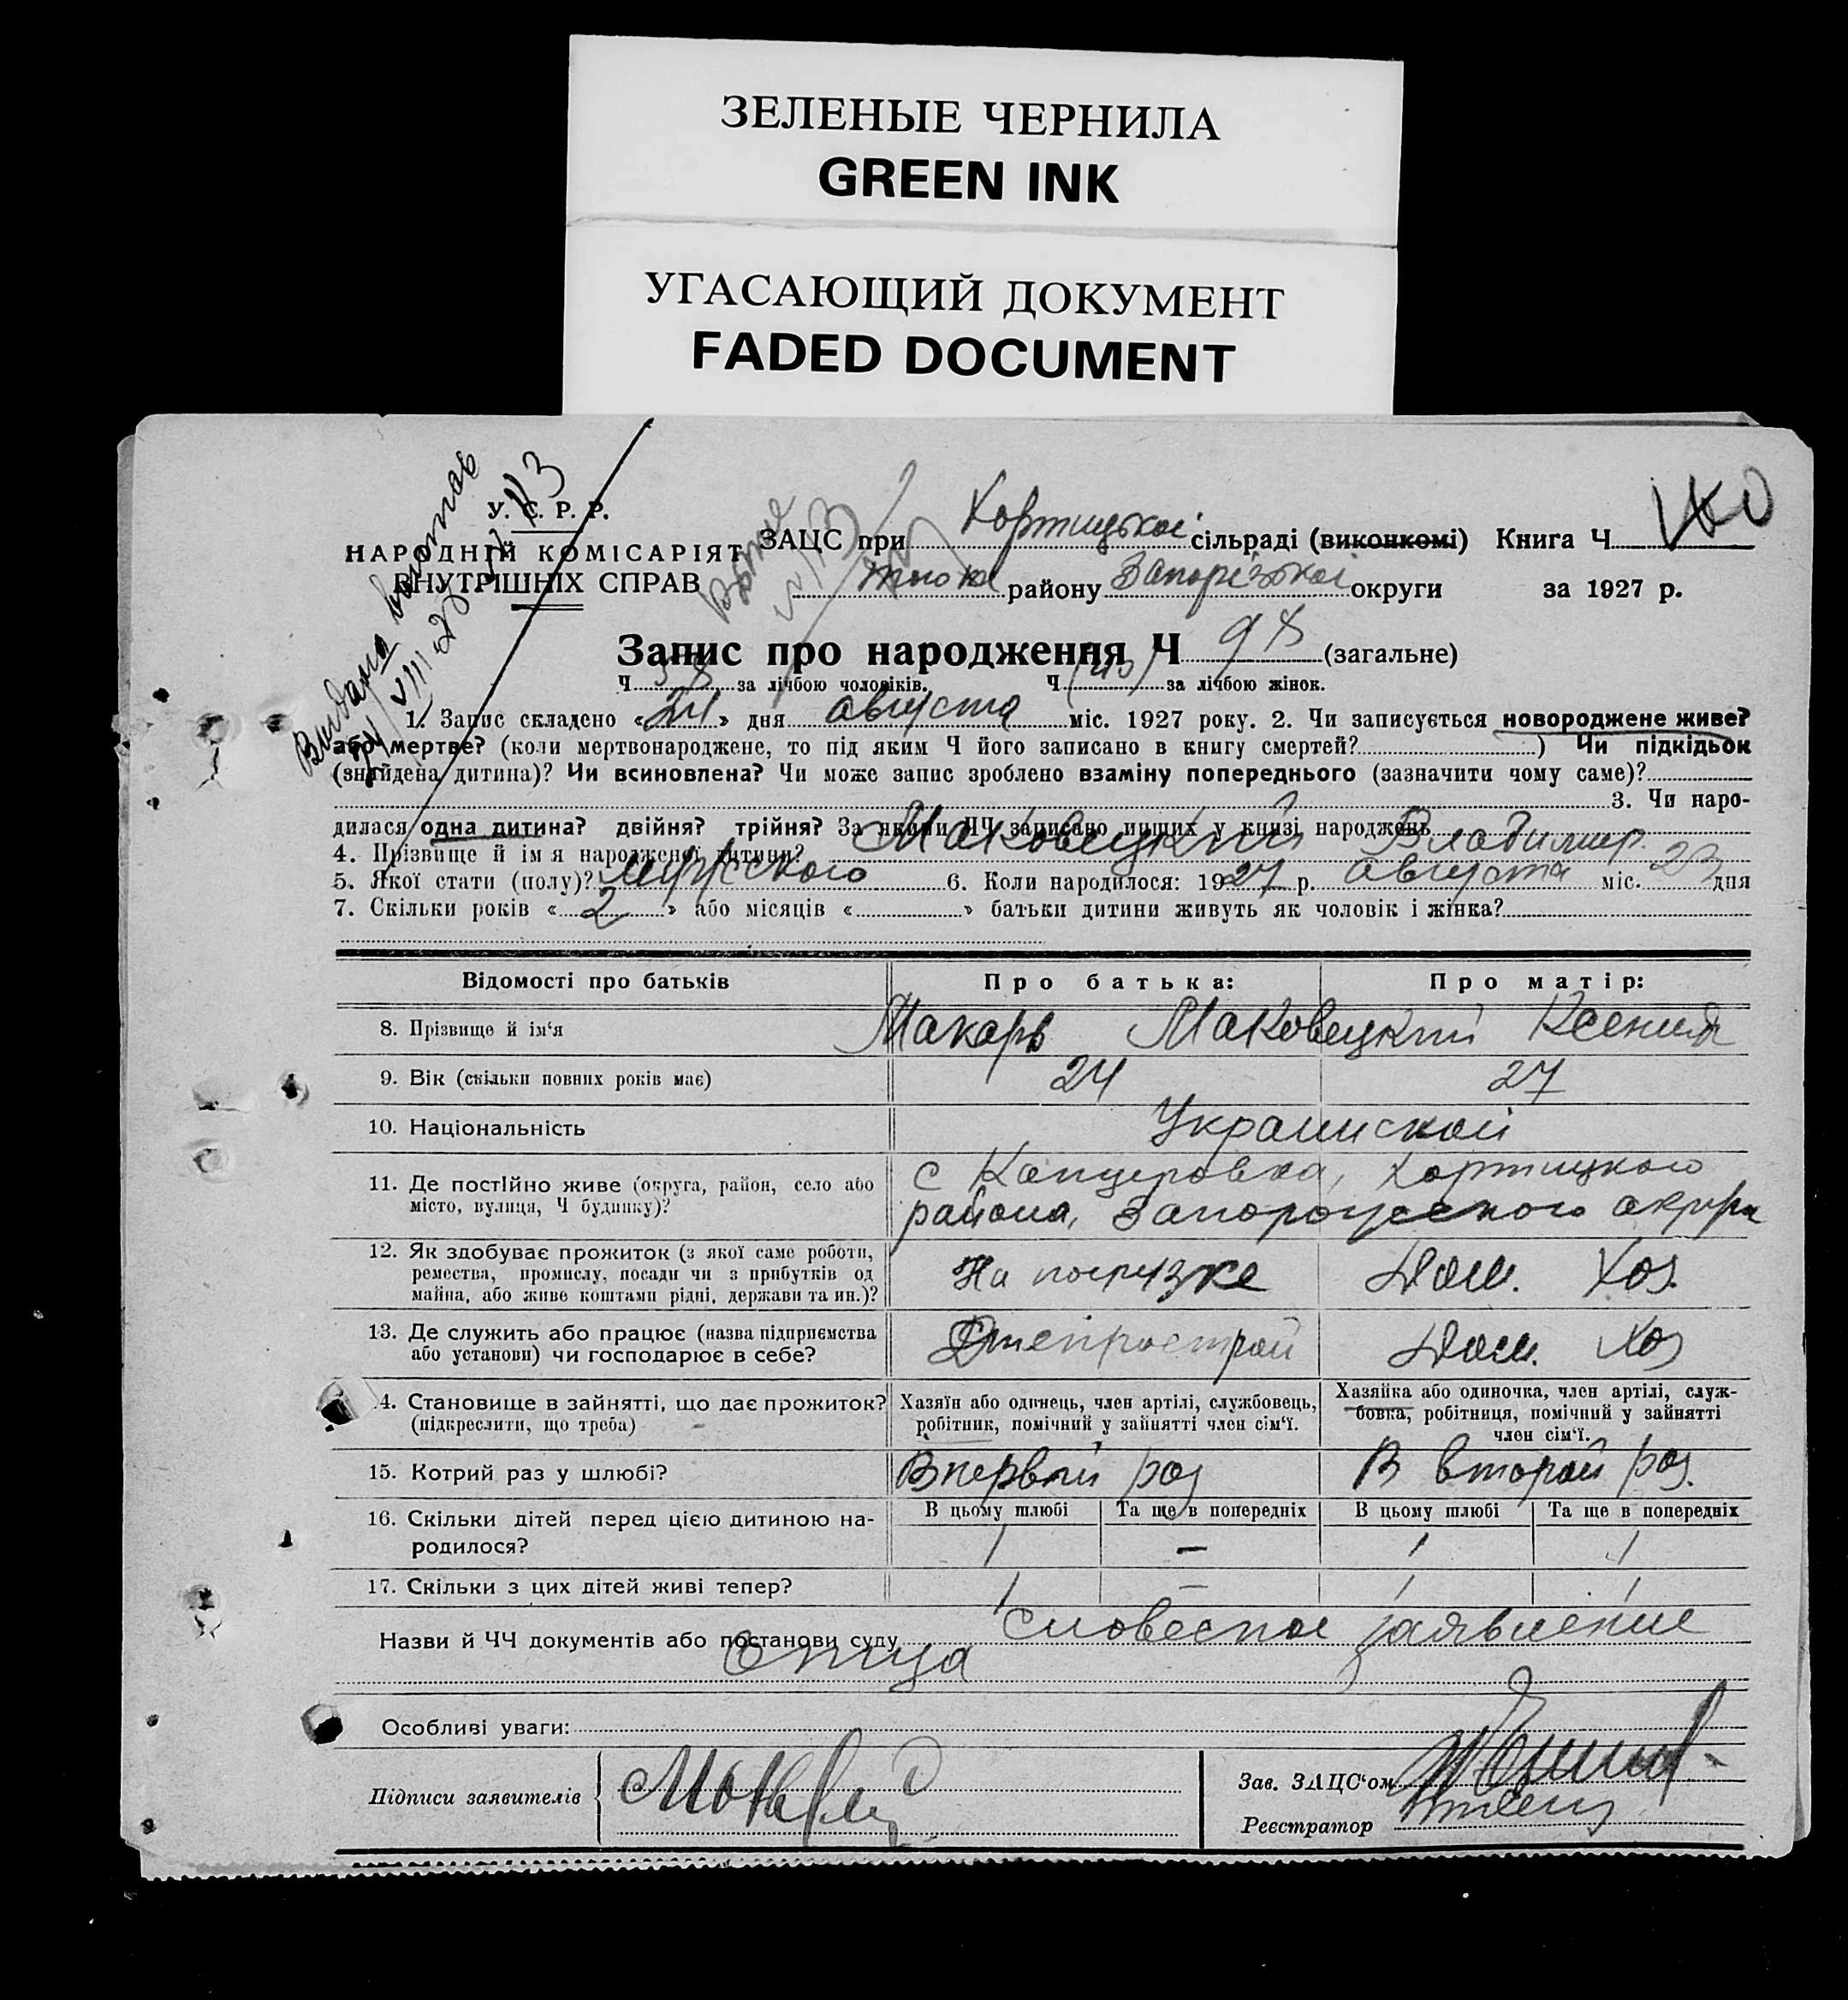 ЗЕЛЕНЫЕ ЧЕРНИЛА
GREEN INK
УГАСАЮЩИЙ ДОКУМЕНТ
FADED DOCUMENT
Видана виптав
У. С. Р. Р.
НАРОДНІЙ КОМІСАРІЯТ
ВНУТРІШНІХ СПРАВ
ЗАЦС при Хортицької сільраді (виконкомі) Книга Ч
району Запорізької округи за 1927 р.
Запис про народження Ч 98 (загальне)
Ч 58 за лічбою чоловіків. Ч (40) за лічбою жінок.
1. Запис складено «24» дня августа міс. 1927 року. 2. Чи записується новороджене живе?
або мертве? (коли мертвонароджене, то під яким Ч його записано в книгу смертей? ) Чи підкідьок
(знайдена дитина)? Чи всиновлена? Чи може запис зроблено взаміну попереднього (зазначити чому саме)?
3. Чи наро-
дилася одна дитина? двійня? трійня? За якими ЧЧ записано инших у книзі народжень
4. Прізвище й ім я народженої дитини? Маковецкий Владимир.
5. Якої стати (полу)? мужского 6. Коли народилося: 1927 р. августа міс. 23 дня
7. Скільки років «2» або місяців « » батьки дитини живуть як чоловік і жінка?
Відомості про батьків Про батька: Про матір:
8. Прізвище й ім‘я Макарь Маковецкий Ксения
9. Вік (скільки повних років має) 24 27
10. Національність Украинской
11. Де постійно живе (округа, район, село або с Канцеровка, Хортицкого
місто, вулиця, Ч будинку)? района, Запорожского округа
12. Як здобуває прожиток (з якої саме роботи,
ремества, промислу, посади чи з прибутків од На погрузке Дом. Хоз.
майна, або живе коштами рідні, держави та ин.)?
13. Де служить або працює (назва підприємства Днепрострой Дом. Хоз
або установи) чи господарює в себе?
4. Становище в зайнятті, що дає прожиток? Хазяїн або одинець, член артілі, службовець, Хазяйка або одиночка, член артілі, служ-
(підкреслити, що треба) робітник, помічний у зайнятті член сім‘ї. бовка, робітниця, помічний у зайнятті
член сім‘ї.
15. Котрий раз у шлюбі? Впервый раз В второй раз.
В цьому шлюбі Та ще в попередніх В цьому шлюбі Та ще в попередніх
16. Скільки дітей перед цією дитиною на-
родилося? 1 – 1 1
17. Скільки з цих дітей живі тепер? 1 – 1 1
Назви й ЧЧ документів або постанови суду словесное заявление
отца
Особливі уваги:
Підписи заявителів
Зав. ЗАЦС‘ом
Реєстратор